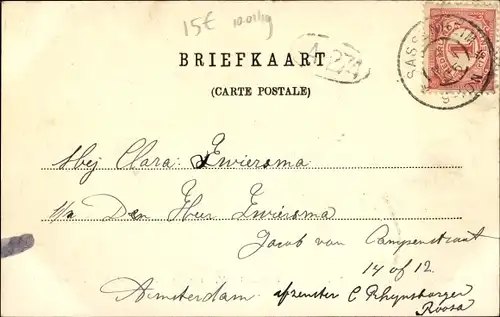 15€
BRIEFKAART
(CARTE POSTALE)
A 274
SASS
1
Mej Clara Zwiersma
p/a Den Heer Zwiersma
Jacob van Campenstraat
14 of 12.
Amsterdam afzenster C Rhijnsburger
Roosa